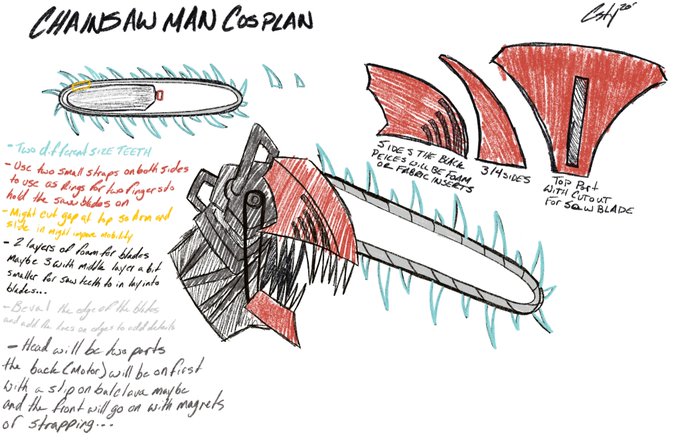 CHAINSAW MAN COSPLAN
Csty 20'
- TWO different SIZE TEETH
- Use two small straps on both sides
to use as Rings for two fingers to
hold the saw blades on
- Might cut gap at top so arm and
size in might improve mobility
- 2 layers of foam for blades
Maybe 3 with middle layer a bit
smaller for saw teeth to in lay into
blades...
- Bevel the edge of the blades
and add the lines on edges to add details
- Head will be two parts
the back (Motor) will be on first
with a slip on balclava maybe
and the front will go on with magnets
or strapping...
SIDES THE BACK
PEICES WILL BE FOAM
OR FABRIC INSERTS
3/4 SIDES
TOP Part
WITH CUTOUT
FOR SAW BLADE